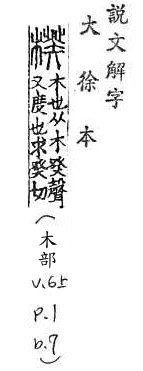 說文解字
大徐本
楑
木也从木癸聲
又度也求癸切
(木部
v.6上
p.1
b.9)